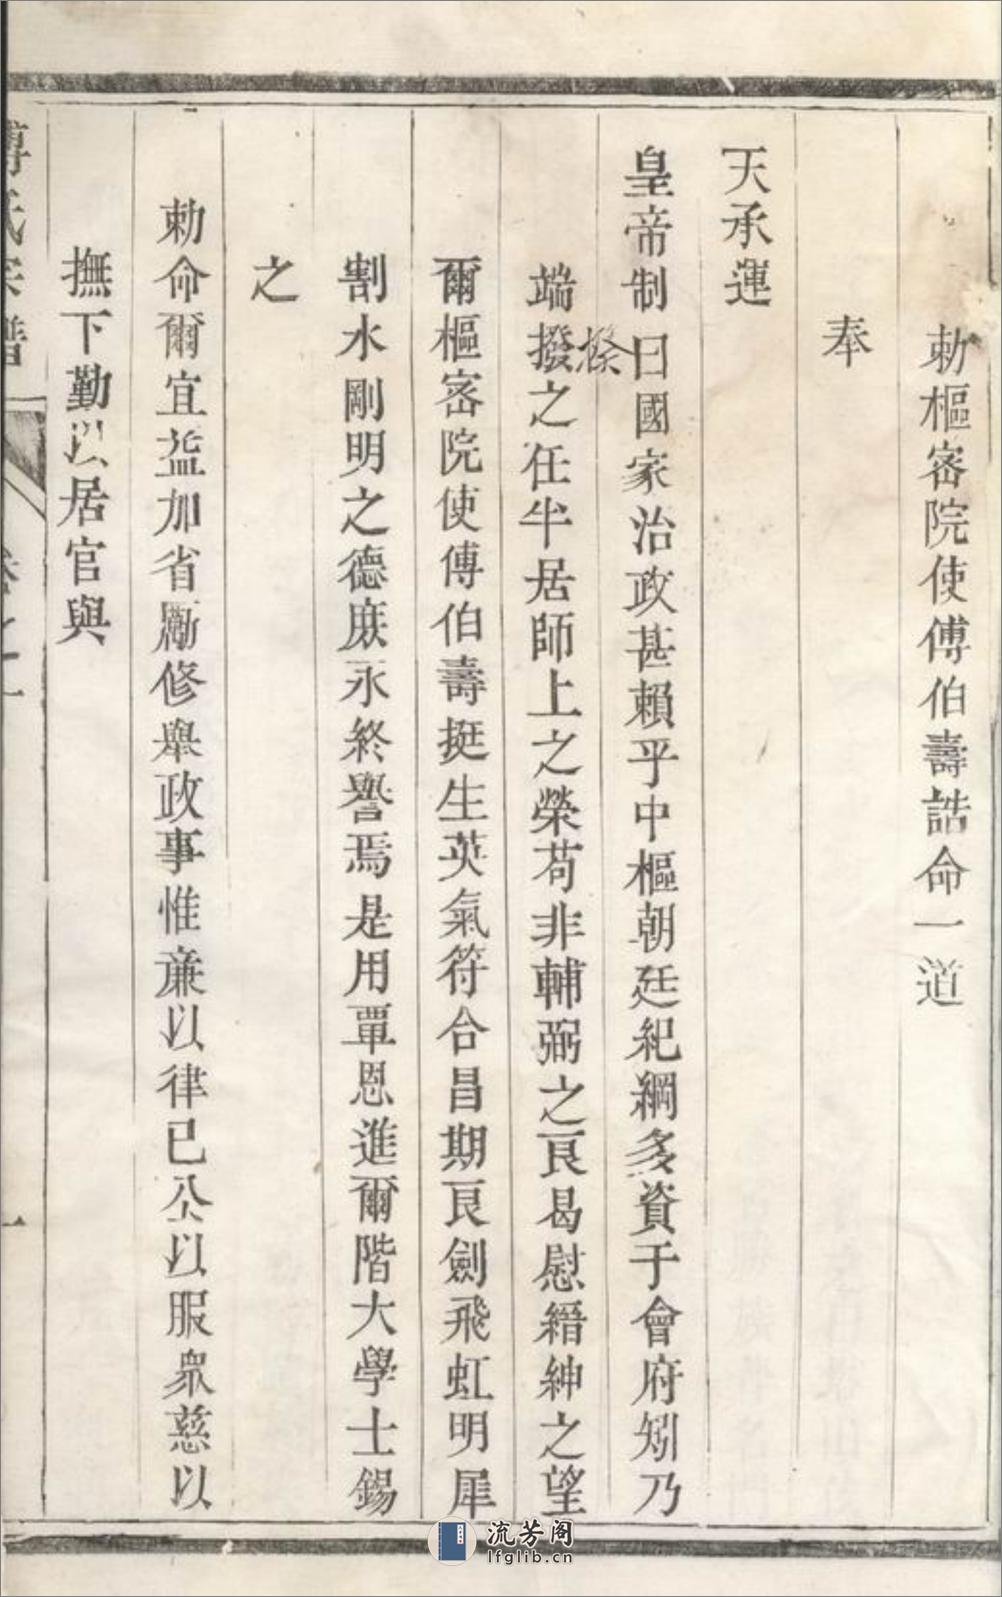 勅樞密院使傅伯壽誥命一道
奉
天承運
皇帝制曰國家治政甚賴乎中樞朝廷紀綱多資于會府矧乃
揆
端撥之任半居師上之榮苟非輔弼之良曷慰縉紳之望
爾樞密院使傅伯壽挺生英氣符合昌期良劍飛虹明犀
割水剛明之德庶永終譽焉是用覃恩進爾階大學士錫
之
勅命爾宜益加省勵修舉政事惟亷以律已公以服衆慈以
撫下勤以居官與
傅氏宗譜
卷之一
一
流芳阁
lfglib.cn